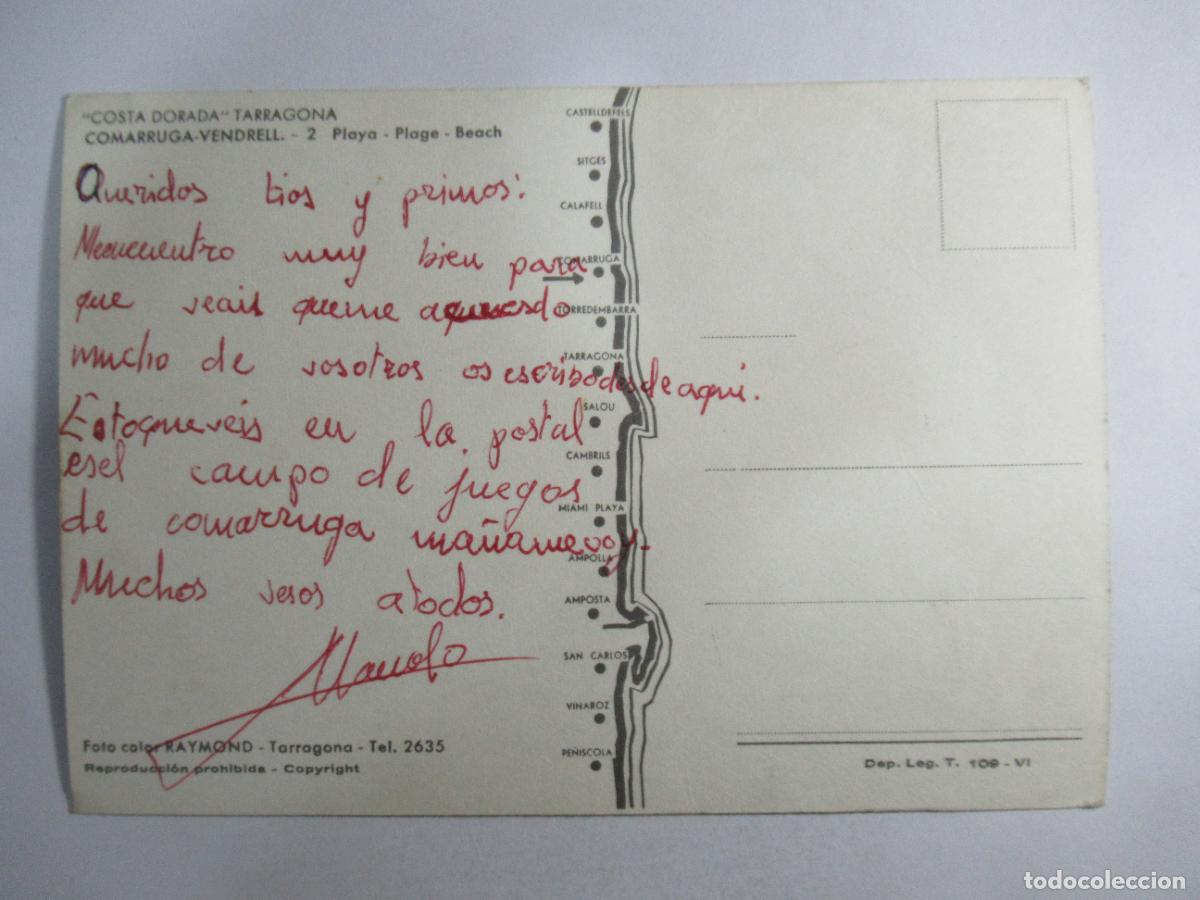 "COSTA DORADA" TARRAGONA
COMARRUGA-VENDRELL. - 2 Playa - Plage - Beach
Queridos tios y primos:
Meencuentro muy bien para
que veais queme acuerdo
mucho de vosotros os escribodesde aqui.
Estoqueveis en la postal
esel campo de juegos
de comarruga mañamevoy.
Muchos vesos atodos.
Manolo
Foto color RAYMOND - Tarragona - Tel. 2635
Reproducción prohibida - Copyright
CASTELLDEFELS
SITGES
CALAFELL
COMARRUGA
TORREDEMBARRA
TARRAGONA
SALOU
CAMBRILS
MIAMI PLAYA
AMPOLLA
AMPOSTA
SAN CARLOS
VINAROZ
PEÑISCOLA
Dep. Leg. T. 109 - VI
todocoleccion